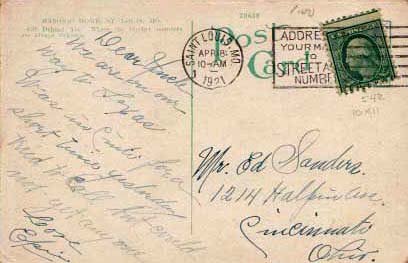 MASONIC HOME, ST. LOUIS, MO.
Post
Card
SAINT LOUIS, MO.
APR 8
10-AM
1921
ADDRESS
YOUR MAIL
TO
STREET AND
NUMBER
542
10X11
Dear
We are on our
way to Texas
Was in Cinti for a
short time yesterday
tried to call but could
not get any one
Love
Mr. Ed Sanders
1214 Halpin Ave.
Cincinnati
Ohio.